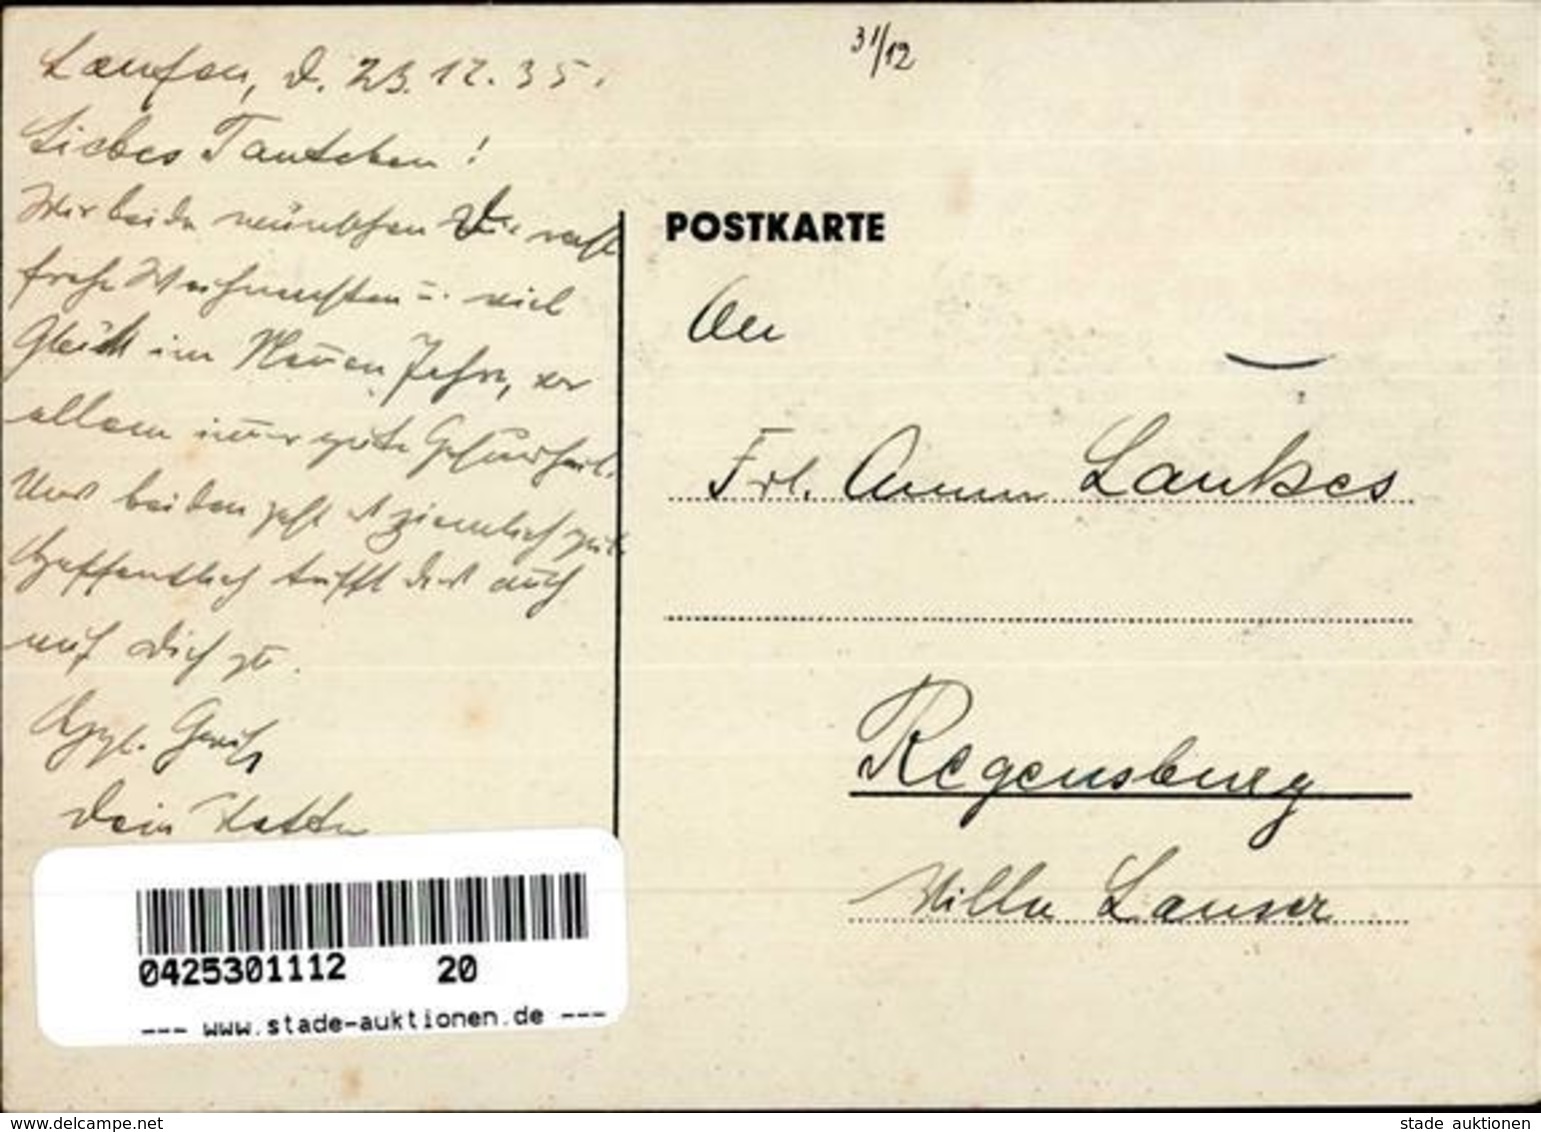 Laufen, d. 23.12.35.
Liebes Tantchen!
Wir beide wünschen Dir recht
frohe Weihnachten u. viel
Glück im Neuen Jahr, vor
allem immer gute Gesundheit.
Uns beiden geht es ziemlich gut
hoffentlich trifft dies auch
auf Dich zu.
Herzl. Grüße
Dein
31/12
POSTKARTE
An
Frl. Anna Laukes
Regensburg
Villa Lauser
0425301112 20
--- www.stade-auktionen.de ---
www.delcampe.net
stade auktionen